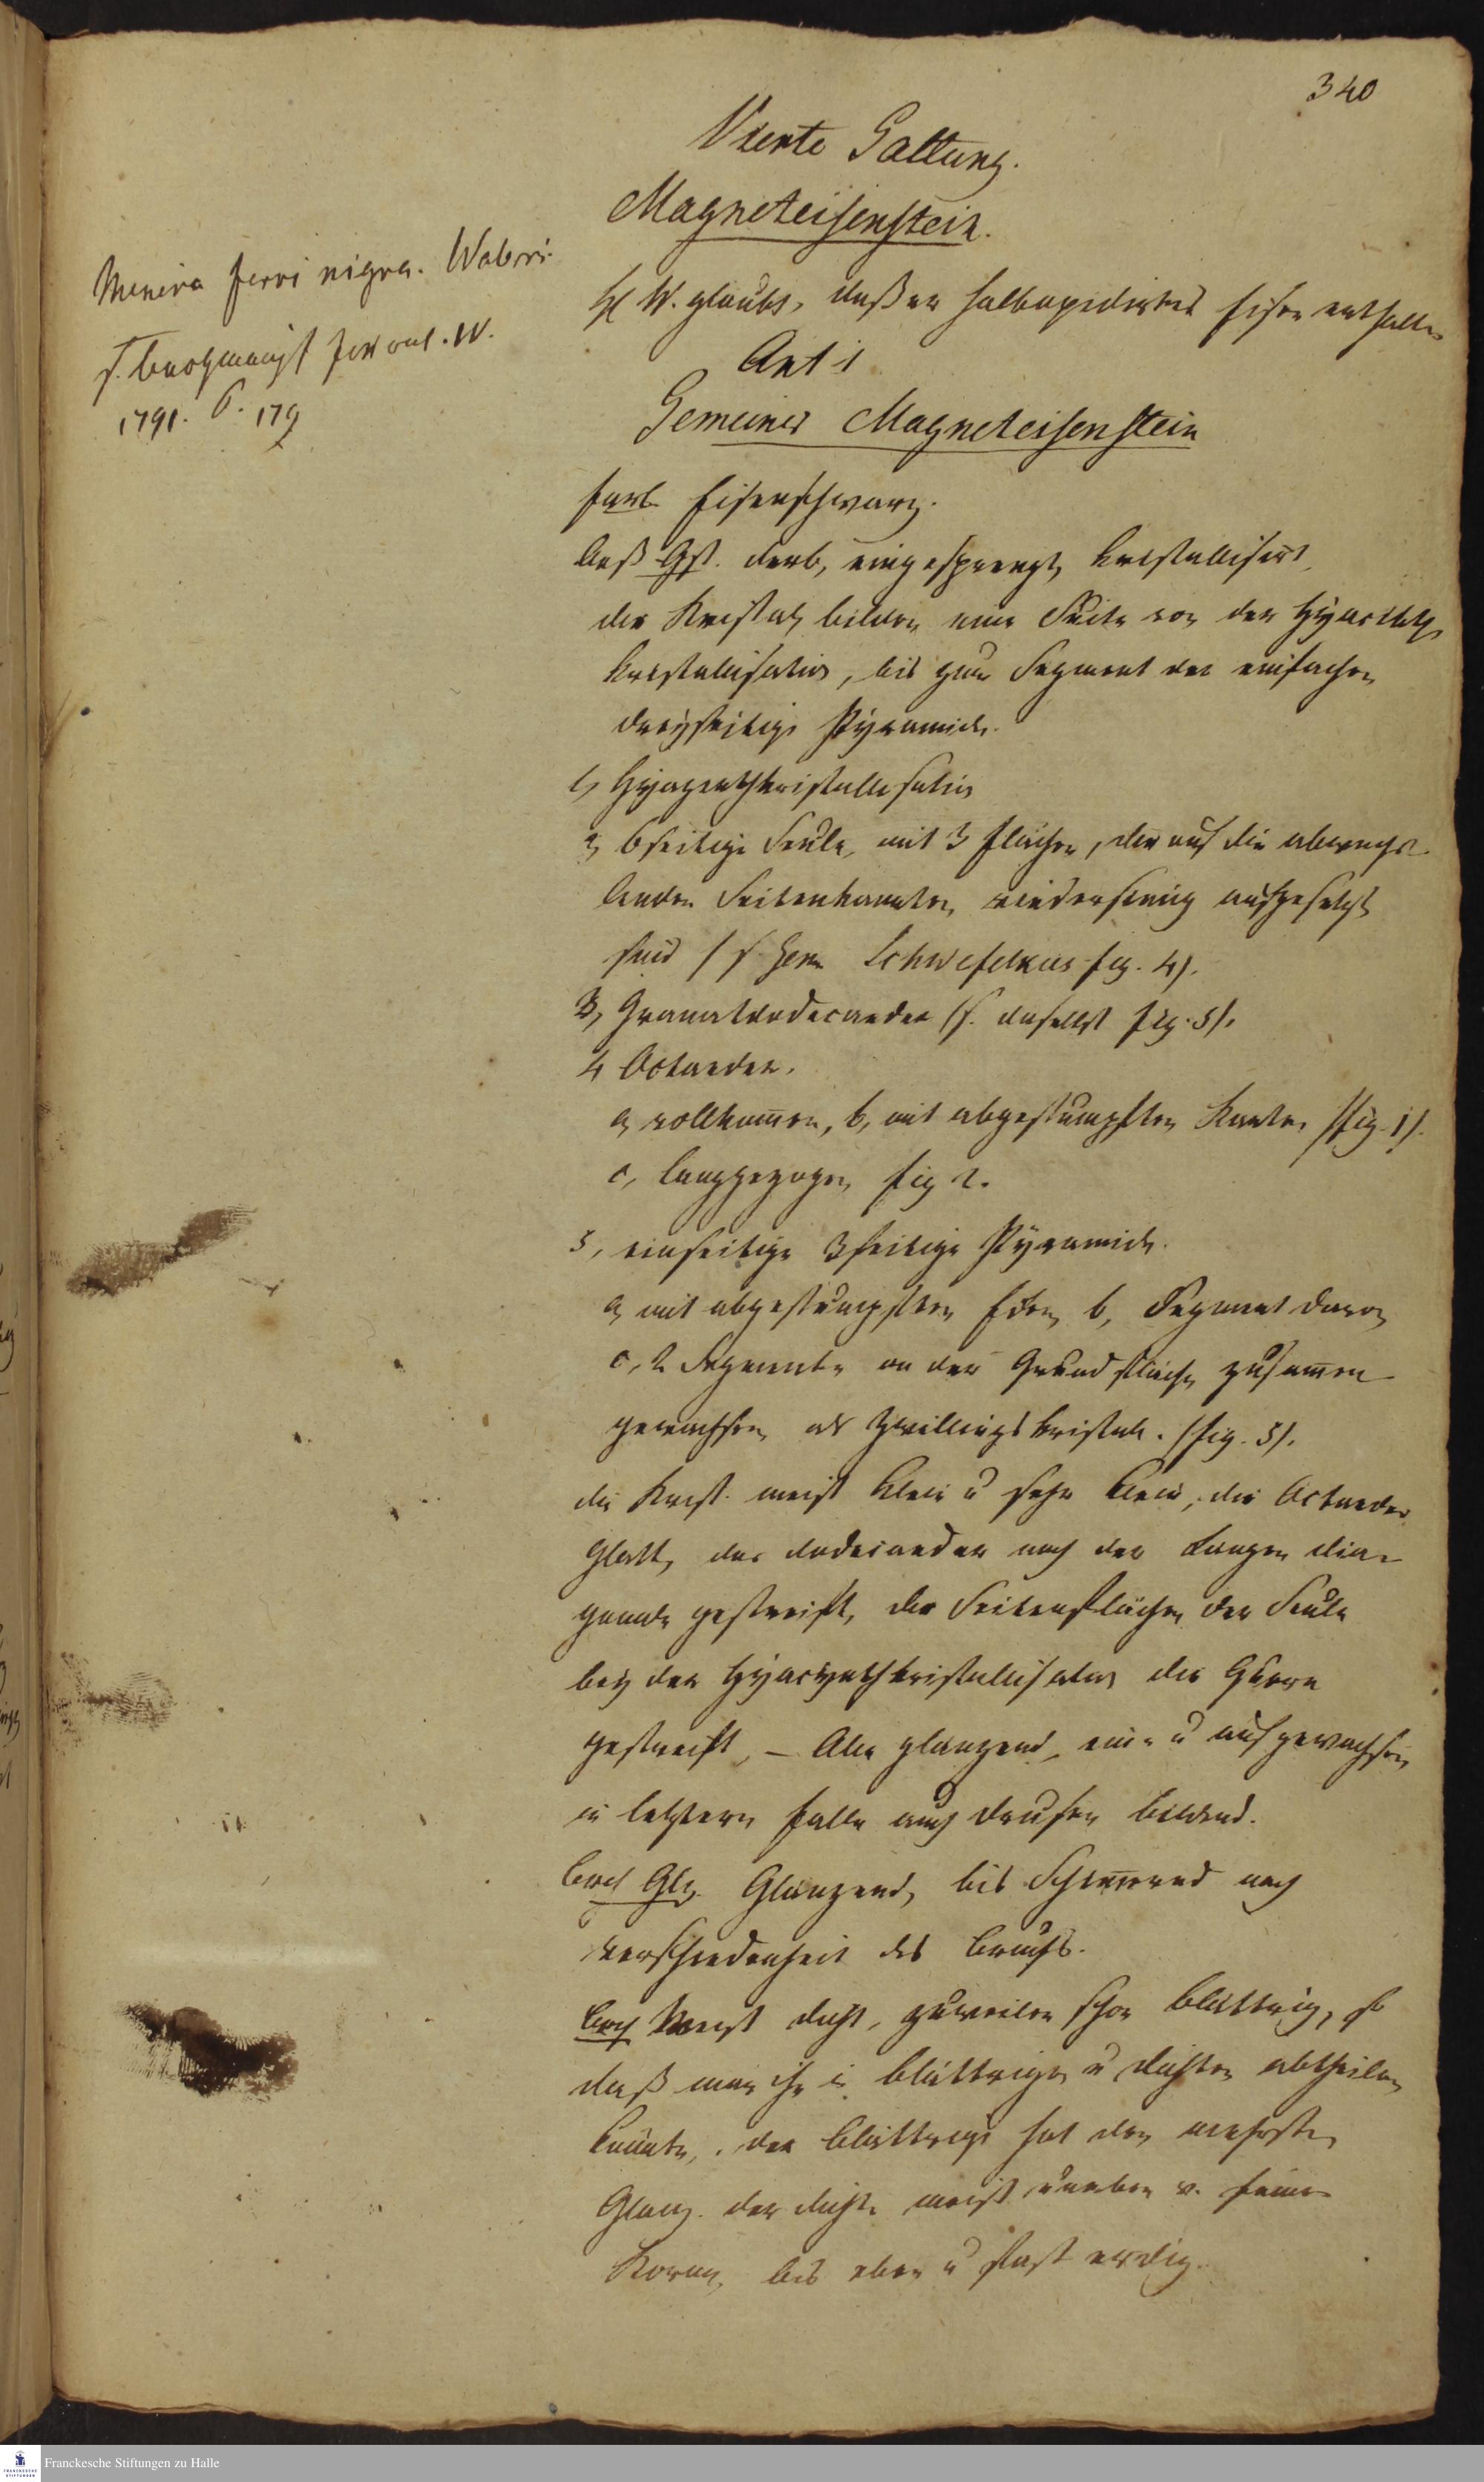 340
Vierte Gattung.
Magneteisenstein.
Minera ferri nigra. Waleri.
s. Bergmännisch Journal. W.
1791. S. 179
H W. glaubt, daß er halboxidirtes Eisen enthalte
Art 1
Gemeiner Magneteisenstein
Farb Eisenschwarz.
Aeß Gst. derb, eingesprengt, kristallisirt
die Kristale bilden eine Suite von der Hyacinth
kristallisation, bis zum Segment der einfachen
dreyseitige Pÿramide.
1, Hyazinthkristallisation
2, 6seitige Seule, mit 3 Flächen, die auf die abwechs-
lenden Seitenkannten, wiedersinnig aufgesetzt
sind / s. Schwefelkies fig. 4).
3, Granatdodecaeder (s. daselbst fig. 5).
4 Octaeder.
a, vollkom̅en, b, mit abgestumpften Kanten (fig. 1).
c, langgezogen, fig 2.
5, einseitige 3seitige Pÿramide.
a, mit abgestumpften Eken, b, Segment davon
c, 2 Segmente an der Grundfläche zusam̅en
gewachsen, als Zwillingskristall. (fig. 3).
die Krist. meist klein u sehr klein, die Octaeder
glatt, das Dodecaeder nach der langen dia-
gonale gestreift, die Seitenflächen der Seule
bey der Hyacinthkristallisation die Queere
gestreift, – Alle glänzend, ein- u aufgewachsen,
in letztern Falle auch Drusen bildend.
Bruch Glz. Glänzend, bis Schim̅ernd nach
Verschiedenheit des Bruchs.
Bruch Meist dicht, zuweilen schon blättrig, so
daß man ihn in blättrigen u dichten abtheilen
könnte, der blättrige hat den mehrsten
Glanz. der dichte meist uneben v. feinen
Korne, bis eben u fast erdig.
Franckesche Stiftungen zu Halle